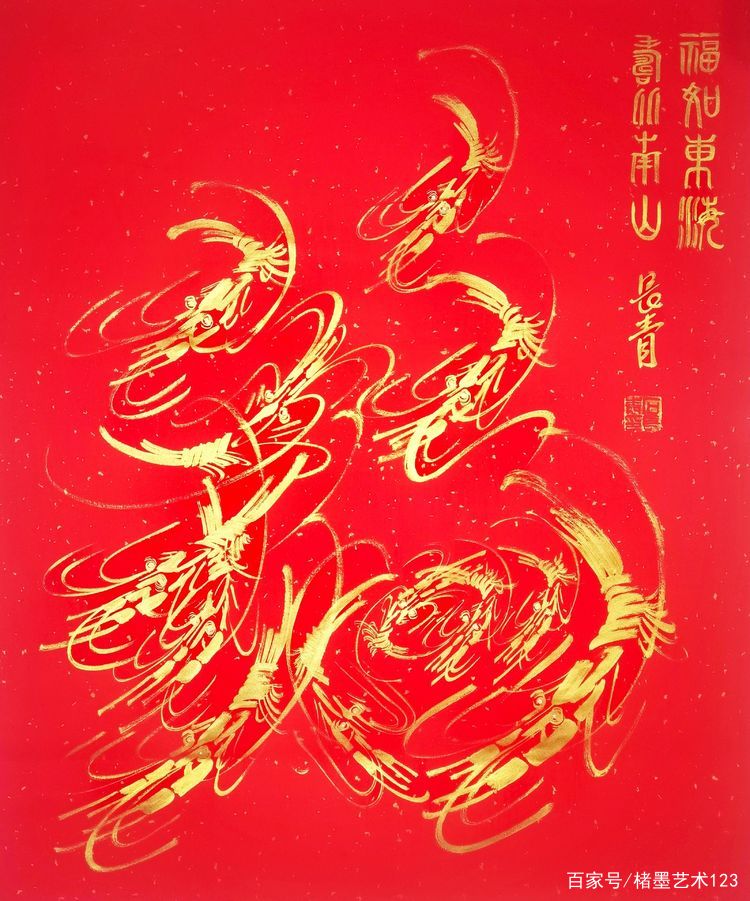 福如東海
壽比南山
長青
百家号/楮墨艺术123